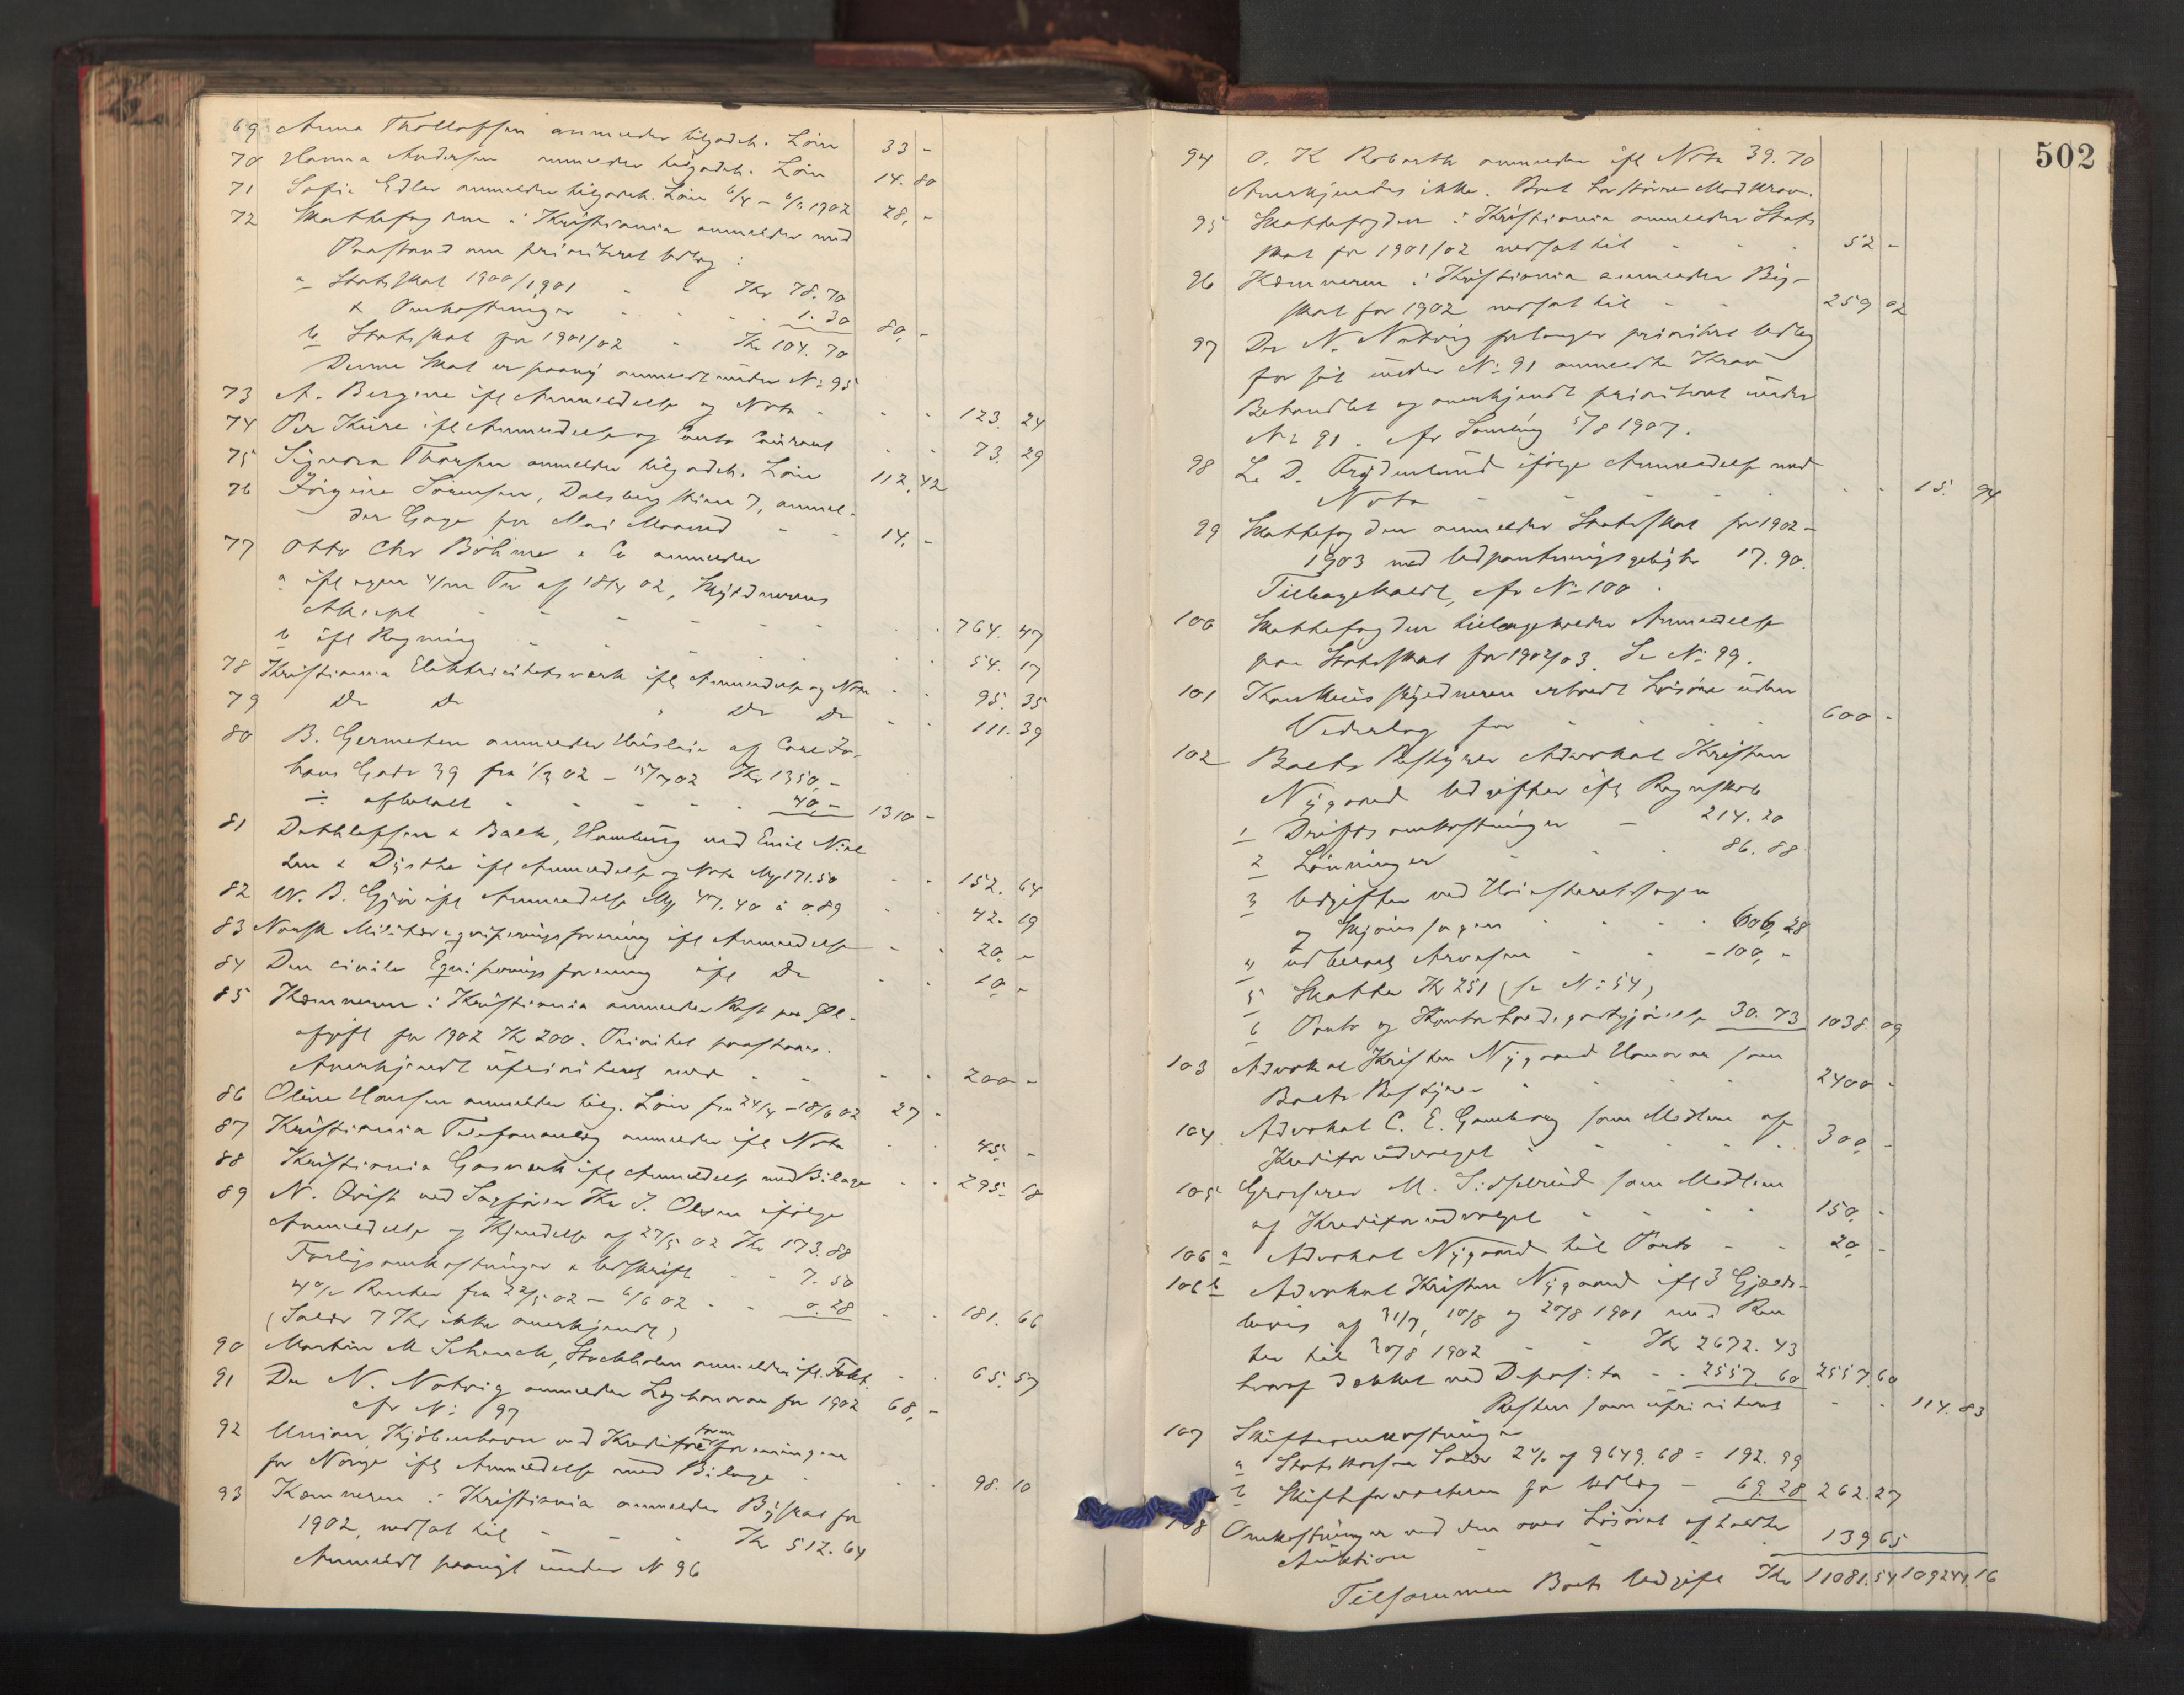 69 Anna Thollefsen anmelder tilgodeh. Løn 33 -
70 Hanna Andersen anmelder tilgodeh. Løn 14. 80
71 Sofie Edler anmelder tilgodeh. Løn 6/4 - 6/6 1902 28, -
72 Skattefogden i Kristiania anmelder med
Paastand om prioriteret Udlæg:
a Statsskat 1900/1901 - - Kr 78. 70
& Omkostninger - - - - 1. 30 80, -
b Statsskat for 1901/02 - Kr 104. 70
Denne Skat er paany anmeldt under No 95
73 A. Bergene ifl Anmeldelse og Nota - - - 123. 24
74 Per Kure ifl Anmeldelse og Conto Courant - - 73. 29
75 Signora Thorsen anmelder tilgodeh. Løn 112, 42
76 Jörgine Sörensen, Dalsbergstien 7, anmel-
der Gage for Mai Maaned - - 14. -
77 Otto Chr Böhme & Co anmelder
a ifl egen 4/m Tr. af 18/4 02, Skyldnerens
Akcept - - - - - - - 764. 47
b ifl Regning - - - - - - - 54. 17
78 Kristiania Elektricitetsverk ifl Anmeldelse og Nota - - 95. 35
79 Do Do , Do Do - - 111. 39
80 B. Germeten anmelder Husleie af Carl Jo-
hans Gade 39 fra 1/3 02 - 15/7 02 Kr 1350, -
÷ afbetalt - - - - - 40, - 1310 -
81 Dethleffsen & Balk, Hamburg ved Emil Niel
sen & Dysthe ifl Anmeldelse og Nota Mk 171.50 - - 152. 64
82 W. B. Gjør ifl Anmeldelse Mk 47. 40 à 0.89 - - 42. 19
83 Norsk Militærequiperingsforening ifl Anmeldelse - - 20. -
84 Den civile Equiperingsforening ifl Do - - 10, -
85 Kæmneren i Kristiania anmelder Rest paa Øl-
afgift for 1902 Kr 200. Prioritet paastaaes.
Anerkjendt uprioriteret med - - - - 200 -
86 Oline Hansen anmelder tilg. Løn fra 24/4 - 18/6 02 27 -
87 Kristiania Telefonanlæg anmelder ifl Nota - - 45. -
88 Kristiania Gasverk ifl Anmeldelse med Bilage - - 295. 18
89 N. Qvist ved Sagfører Kr. J. Olsen ifølge
Anmeldelse og Kjendelse af 27/5 02 Kr 173. 88
Forligsomkostninger & Udskrift - - 7. 50
4% Renter fra 22/5 02 - 6/6 02 - - 0. 28 - - 181. 66
(Salær 7 Kr ikke anerkjendt)
90 Martin M Schenck, Stockholm anmelder ifl. Fakt. - - 65. 57
91 Dr N. Natvig anmelder Lægehonorar for 1902 68, -
cfr No 97
92 Union, Kjøbenhavn ved Kreditorforeningen
for Norge ifl Anmeldelse med Bilage - - - 98. 10
93 Kæmneren i Kristiania anmelder Byskat for
1902, nedsat til - - - Kr 512. 64
Anmeldt paanyt under No 96
502
94 O. K Robarth anmelder ifl Nota 39. 70
Anerkjendes ikke. Boet har større Modkrav.
95 Skattefogden i Kristiania anmelder Stats
skat for 1901/02 nedsat til - - - 52 -
96 Kæmneren i Kristiania anmelder By-
skat for 1902 nedsat til - - 259 02
97 Dr N. Natvig forlanger prioritet Udlæg
for sit under No 91 anmeldte Krav
Behandlet og anerkjendt prioriteret under
No 91. cfr Samling 5/8 1907.
98 L. D. Frydenlund ifølge Anmeldelse med
Nota - - - - - - 15. 94
99 Skattefogden anmelder Statsskat for 1902-
1903 med Udpantningsgebyhr 17. 90.
Tilbagekaldt, cfr No 100.
100 Skattefogden tilbagekalder Anmeldelse
paa Statsskat for 1902/03. Se No 99.
101 Konkursskyldneren erholdt Løsøre uden
Vederlag for - - - - 600 -
102 Boets Bestyrer Advokat Kristen
Nygaard Udgifter ifl Regnskab
1 Driftsomkostninger - 214. 20
2 Lønninger - - - 86. 88
3 Udgifter ved Høiesteretssagen
og Skjønssagen - - - - 606, 28
4 udbetalt Arvesen - - - 100, -
5 Skatte Kr 251 (se No 54)
6 Porto og Kontorholdsgodtgjørelse 30. 73 1038. 09
103 Advokat Kristen Nygaard Honorar som
Boets Bestyrer - - - - 2400 -
104. Advokat C. E. Gamborg som Medlem af
Kreditorudvalget - - - - - 300, -
105 Grosserer M. Sidselrud som Medlem
af Kreditorudvalget - - - - 150, -
106 a Advokat Nygaard til Porto - - 20, -
106 b Advokat Kristen Nygaard ifl 3 Gjælds-
bevis af 31/7, 10/8 og 20/8 1901 med Ren
ter til 20/8 1902 - - Kr 2672. 43
hvoraf dækket ved Deposita - - 2557, 60 2557, 60
Resten som uprioriteret - - 114. 83
107 Skifteomkostninger
a Statskassens Salær 2% af 9649, 68 = 192. 99
b Skifteforvalteren for Udlæg - 69. 28 262. 27
108 Omkostninger ved den over Løsøret afholdte
Auktion - - - - 139 65
Tilsammen Boets Udgift Kr 11081. 54 109244. 16